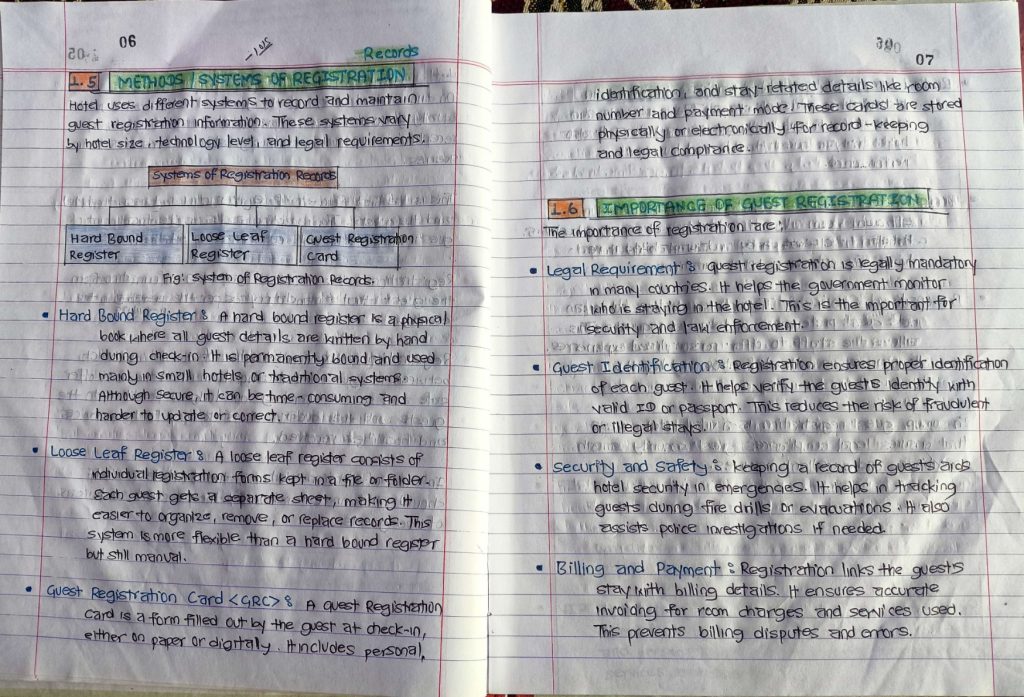 06
Records
1.5 METHODS / SYSTEMS OF REGISTRATION
Hotel uses different systems to record and maintain
guest registration information. These systems vary
by hotel size, technology level, and legal requirements.
Systems of Registration Records
Hard Bound Register
Loose Leaf Register
Guest Registration Card
Fig: System of Registration Records.
• Hard Bound Register : A hard bound register is a physical
book where all guest details are written by hand
during check-in. It is permanently bound and used
mainly in small hotels or traditional systems.
Although secure, it can be time-consuming and
harder to update or correct.
• Loose Leaf Register : A loose leaf register consists of
individual registration forms kept in a file or folder.
Each guest gets a separate sheet, making it
easier to organize, remove, or replace records. This
system is more flexible than a hard bound register
but still manual.
• Guest Registration Card <GRC> : A Guest Registration
Card is a form filled out by the guest at check-in,
either on paper or digitally. It includes personal,
07
identification, and stay-related details like room
number and payment mode. These cards are stored
physically or electronically for record-keeping
and legal compliance.
1.6 IMPORTANCE OF GUEST REGISTRATION
The importance of registration are:
• Legal Requirement : guest registration is legally mandatory
in many countries. It helps the government monitor
who is staying in the hotel. This is the important for
security and law enforcement.
• Guest Identification : Registration ensures proper identification
of each guest. It helps verify the guests identity with
valid ID or passport. This reduces the risk of fraudulent
or illegal stays.
• Security and Safety : keeping a record of guests aids
hotel security in emergencies. It helps in tracking
guests during fire drills or evacuations. It also
assists police investigations if needed.
• Billing and Payment : Registration links the guests
stay with billing details. It ensures accurate
invoicing for room charges and services used.
This prevents billing disputes and errors.